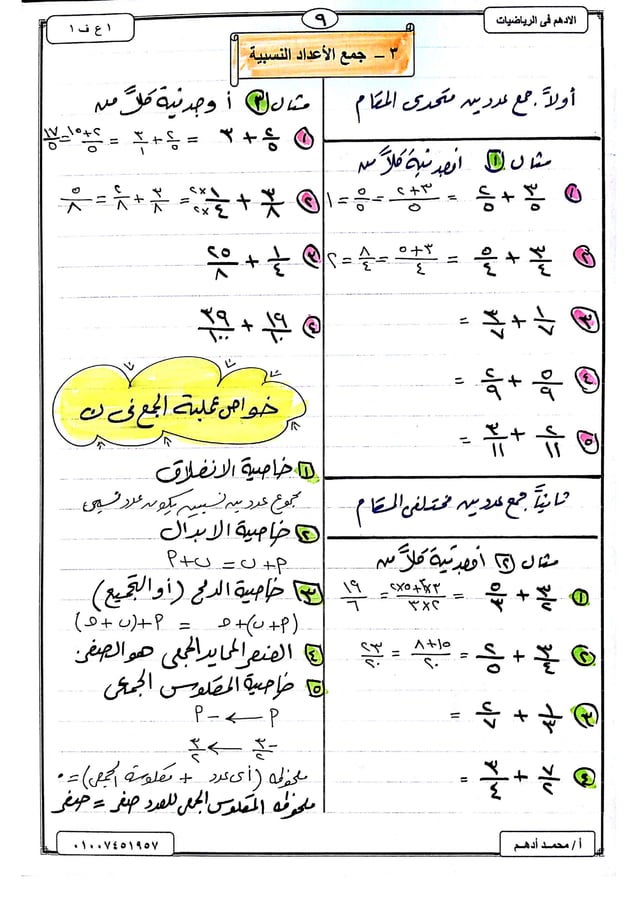 الادهم فى الرياضيات
٩
١ ع ف ١
٣ – جمع الأعداد النسبية
أولاً: جمع عددين متحدى المقام
مثال ١ أوجد قيمة كلاً من
١ ٣/٥ + ٢/٥ = (٣+٢)/٥ = ٥/٥ = ١
٢ ٣/٤ + ٥/٤ = (٣+٥)/٤ = ٨/٤ = ٢
٣ ١/٧ + ٣/٧ =
٤ ٥/٩ + ٢/٩ =
٥ ٢/١١ + ٣/١١ =
ثانياً: جمع عددين مختلفى المقام
مثال ٢ أوجد قيمة كلاً من
١ ٣/٢ + ٥/٣ = (٣×٣+٥×٢)/(٢×٣) = ١٩/٦
٢ ٣/٤ + ٢/٥ = (١٥+٨)/٢٠ = ٢٣/٢٠
٣ ١/٣ + ٢/٧ =
٤ ٧/٢ + ٣/٤ =
مثال ٣ أوجد قيمة كلاً من
١ ٢/٥ + ٣ = ٢/٥ + ٣/١ = (٢+١٥)/٥ = ١٧/٥
٢ ٣/٨ + ١×٢/٤×٢ = ٣/٨ + ٢/٨ = ٥/٨
٣ ١/٤ + ٢٥/٨
٤ ١٩/١٠ + ٣٩/١٠٠
خواص عملية الجمع فى ن
١ خاصية الانغلاق
مجموع عددين نسبيين يكون عدد نسبى
٢ خاصية الابدال
٩ + ب = ب + ٩
٣ خاصية الدمج (أو التجميع)
(٩+ب)+ج = ٩+(ب+ج)
٤ العنصر المحايد الجمعى هو الصفر
٥ خاصية المعكوس الجمعى
٩ ← -٩
-٣/٢ ← ٣/٢
ملحوظه (أى عدد + معكوسه الجمعى) = ٠
ملحوظه المعكوس الجمعى للعدد صفر = صفر
أ / محمد أدهم
٠١٠٠٧٤٥١٩٥٧